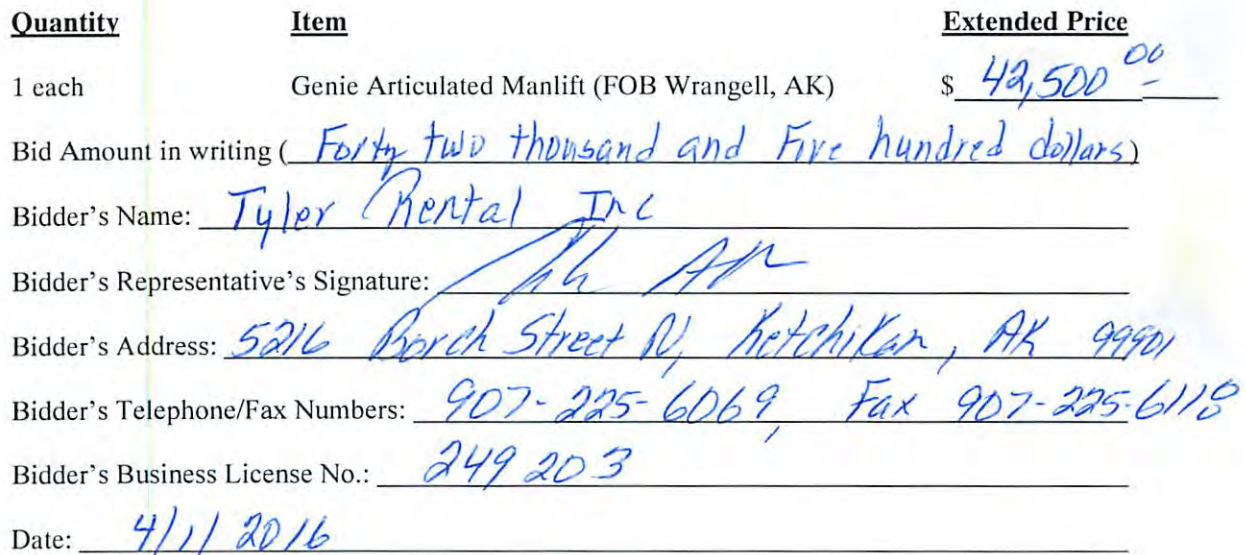 Quantity Item Extended Price
1 each Genie Articulated Manlift (FOB Wrangell, AK) $ 42,500 00
Bid Amount in writing ( Forty two thousand and Five hundred dollars)
Bidder's Name: Tyler Rental Inc
Bidder's Representative's Signature:
Bidder's Address: 5216 Borch Street N, Ketchikan, AK 99901
Bidder's Telephone/Fax Numbers: 907-225-6069, Fax 907-225-6118
Bidder's Business License No.: 249203
Date: 4/11 2016